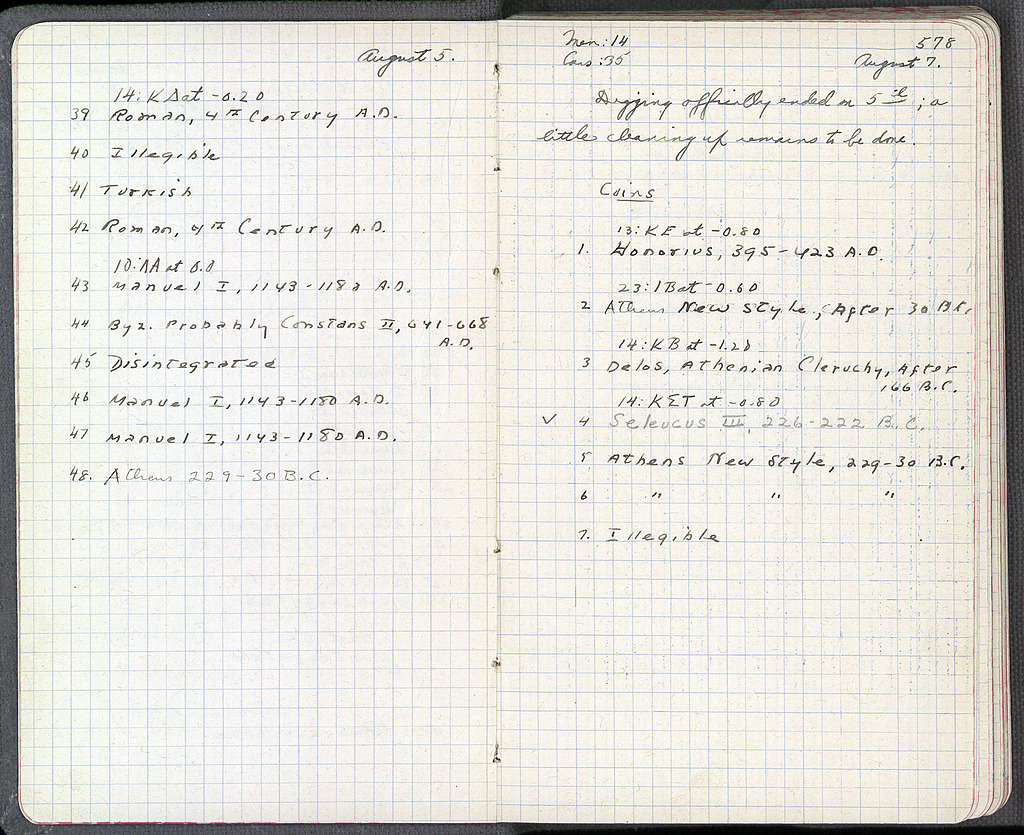 August 5.
14: KΔ at -0.20
39 Roman, 4TH Century A.D.
40 Illegible
41 Turkish
42 Roman, 4TH Century A.D.
10: ΛΑ at 0.0
43 Manuel I, 1143-1180 A.D.
44 Byz. Probably Constans II, 641-668
A.D.
45 Disintegrated
46 Manuel I, 1143-1180 A.D.
47 Manuel I, 1143-1180 A.D.
48. Athens 229-30 B.C.
Men: 14
578
Cars: 35
August 7.
Digging officially ended on 5th; a
little cleaning up remains to be done.
Coins
13: KE at -0.80
1. Honorius, 395-423 A.D.
23: IB at -0.60
2 Athens New Style, After 30 B.C.
14: KB at -1.20
3 Delos, Athenian Cleruchy, After
166 B.C.
14: KΣΤ at -0.80
✓ 4 Seleucus III, 226-222 B.C.
5 Athens New Style, 229-30 B.C.
6 " " "
7. Illegible